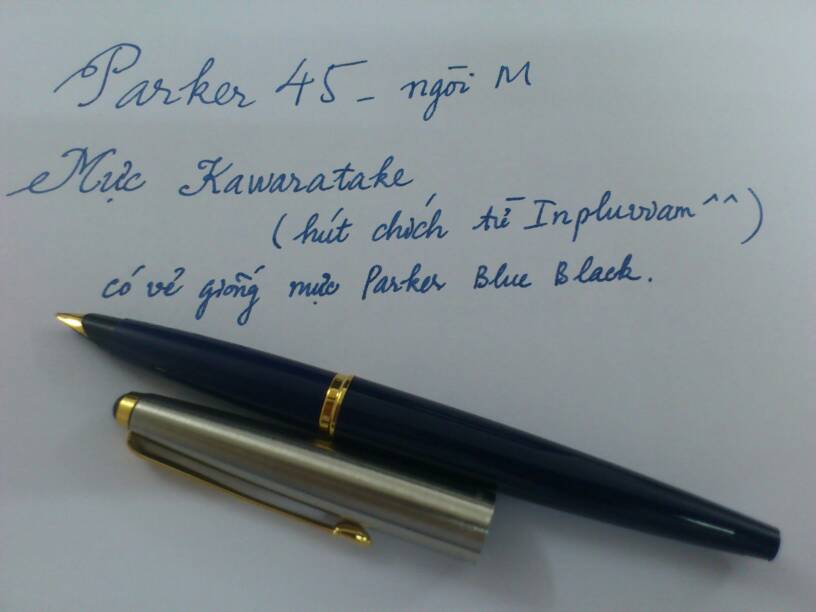 Parker 45 - ngòi M
Mực Kawaratake
(hút chích từ Inpluviam ^^)
có vẻ giống mực Parker Blue Black.